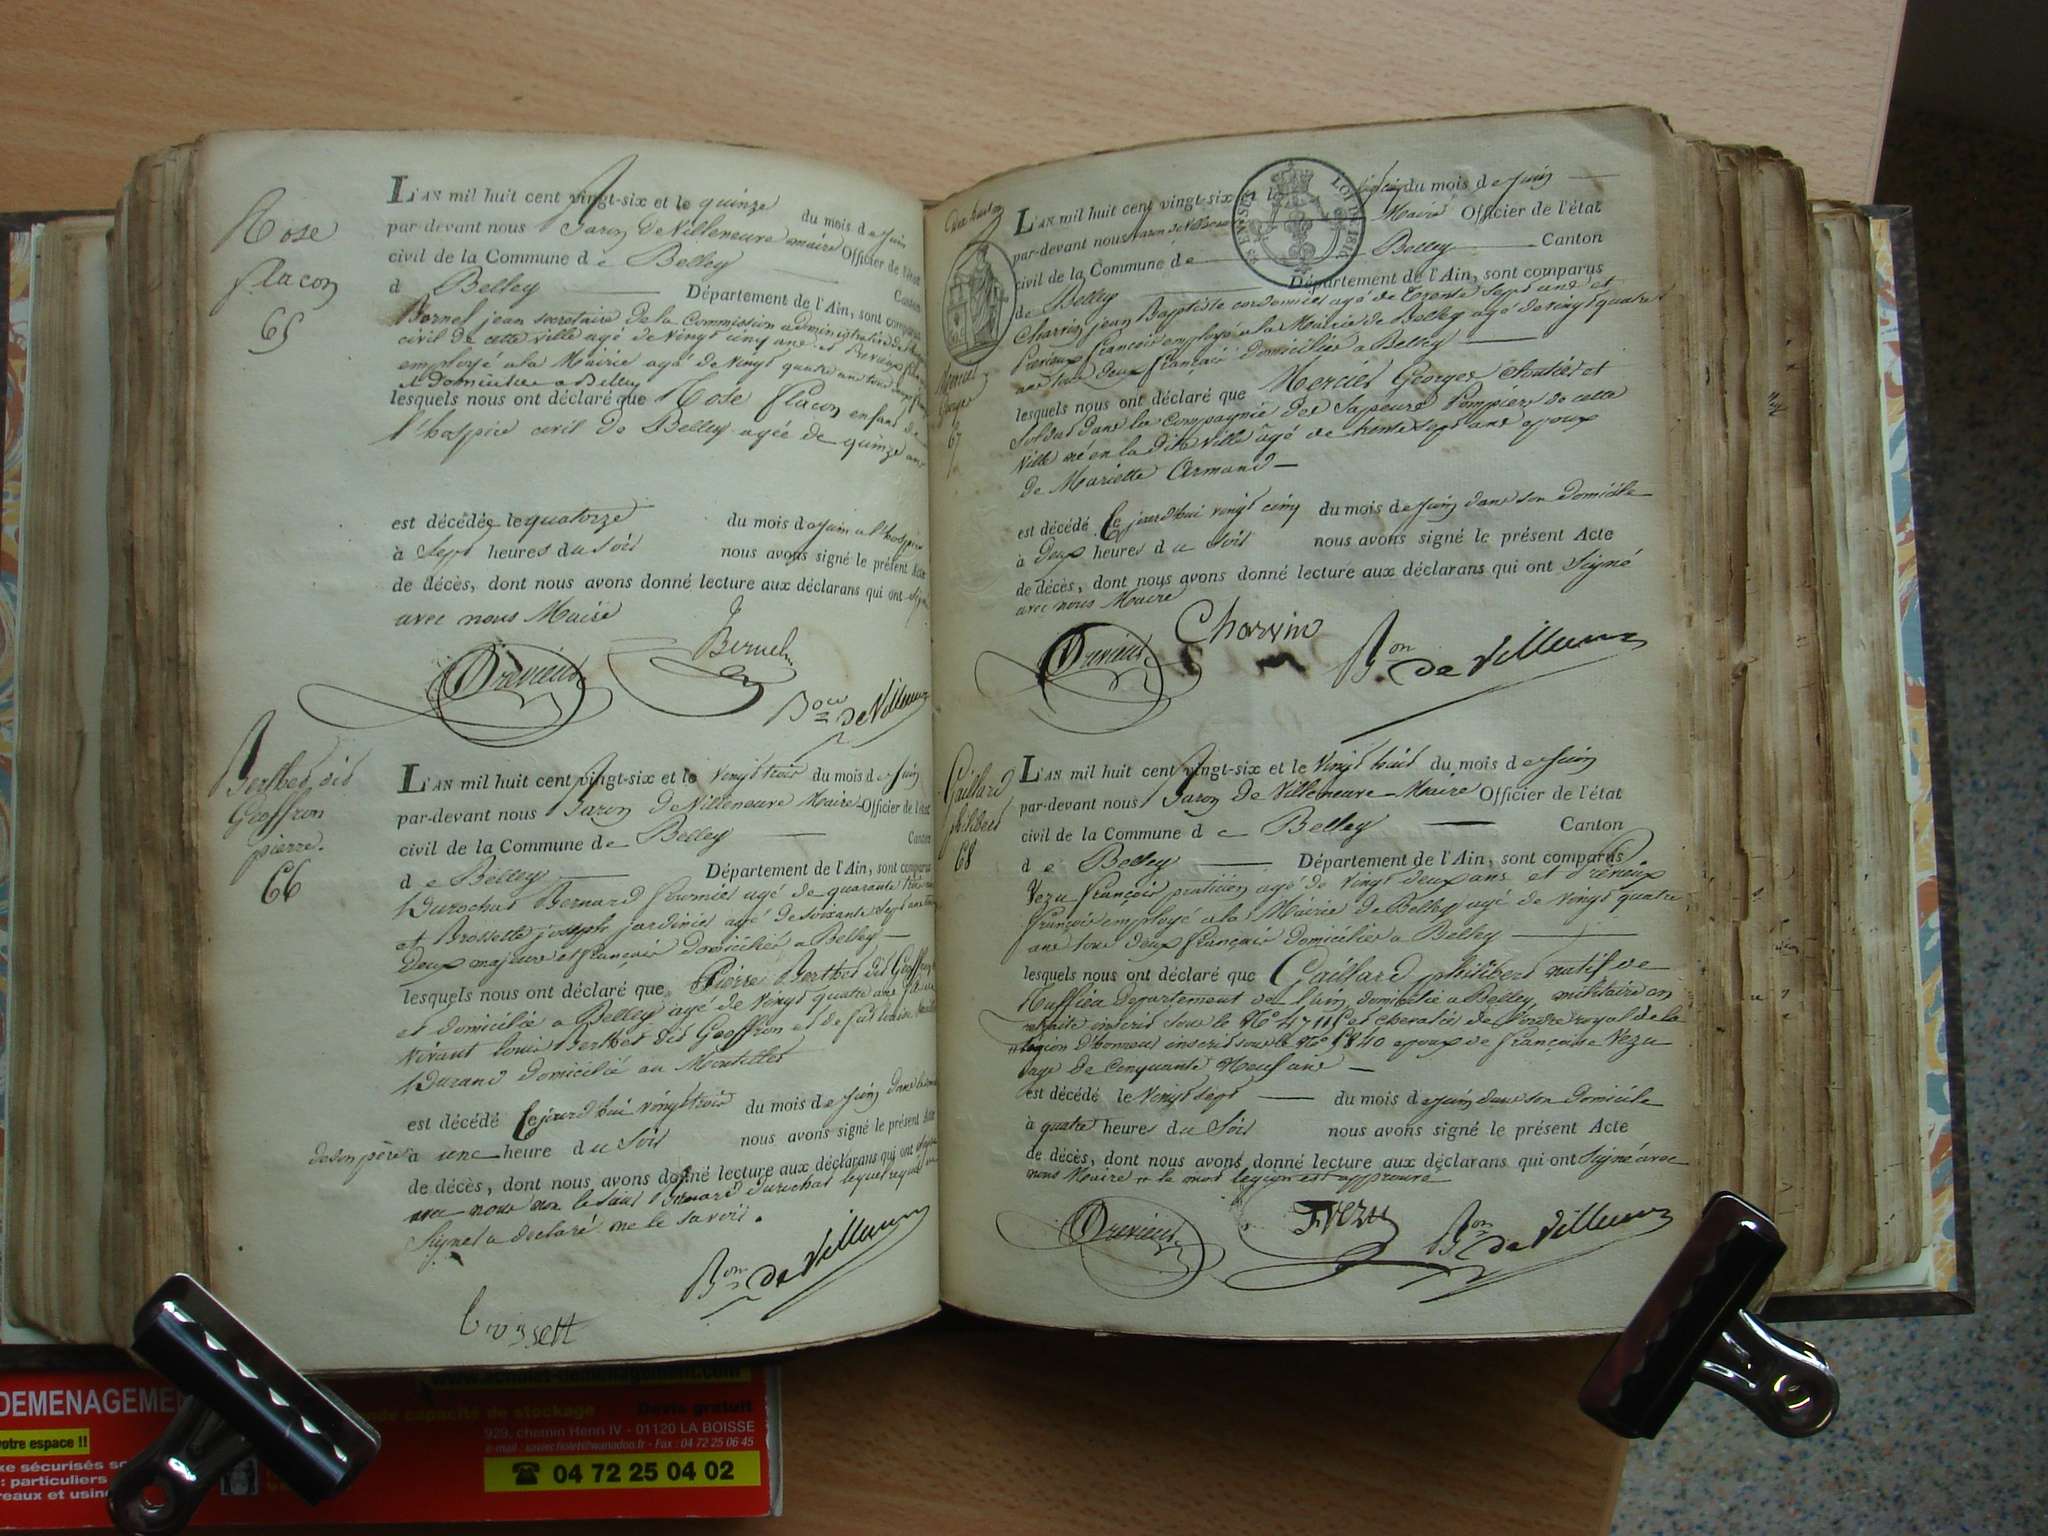 Rose
flacon
65
L'AN mil huit cent vingt-six et le quinze du mois de juin
par-devant nous Baron De Villeneuve maire Officier de l'état
civil de la Commune de Belley Canton
d Belley Département de l'Ain, sont comparus
Bernel jean secretaire de la Commission administrative de
civil de cette ville agé de Vingt cinq ans et Drevieux
employé a la Mairie agé de Vingt quatre ans tous
domiciliés a Belley
lesquels nous ont déclaré que Rose flacon enfant de
l'hospice civil de Belley agée de quinze ans
est décédée le quatorze du mois de juin a l'hospice
à Sept heures du Soir nous avons signé le présent Acte
de décès, dont nous avons donné lecture aux déclarans qui ont signé
avec nous Maire
Drevieux
Bernel
Bon de Villeneuve
Berthet dit
Geoffron
pierre.
66
L'AN mil huit cent vingt-six et le Vingt trois du mois de juin
par-devant nous Baron De Villeneuve Maire Officier de l'état
civil de la Commune de Belley Canton
de Belley Département de l'Ain, sont comparus
Durochat Bernard fournier agé de quarante
et Brossette joseph jardinier agé de soixante sept ans tous
Deux majeurs et français domiciliés a Belley
lesquels nous ont déclaré que Pierre Berthet dit Geoffron
et domicilié a Belley agé de Vingt quatre ans
vivant Louis Berthet dit Geoffron et de
Durand domicilié au
est décédé Cejourd'hui vingt trois du mois de juin dans le
de son père à une heure du Soir nous avons signé le présent Acte
de décès, dont nous avons donné lecture aux déclarans qui ont signé
avec nous non le Bernard Durochat lequel requis de
Signer a déclaré ne le savoir.
Bon de Villeneuve
brossett
LOI DE 1816
L'AN mil huit cent vingt-six et le du mois de juin
par-devant nous Baron de Villeneuve Maire Officier de l'état
civil de la Commune de Belley Canton
de Belley Département de l'Ain, sont comparus
Charvin jean Baptiste cordonnier agé de trente sept ans et
Drevieux françois employé a la Mairie de Belley agé de vingt quatre
ans tous deux français domiciliés a Belley
Mercier
George
67
lesquels nous ont déclaré que Mercier Georges et
Soldat dans la Compagnie des Sapeurs Pompiers de cette
Ville né en la dite ville agé de trente sept ans epoux
de Mariette Armand
est décédé Cejourd'hui vingt cinq du mois de juin dans son domicile
à Deux heures du Soir nous avons signé le présent Acte
de décès, dont nous avons donné lecture aux déclarans qui ont Signé
avec nous Maire
Drevieux
Charvin
Bon de Villeneuve
Gaillard
philibert
68
L'AN mil huit cent vingt-six et le Vingt huit du mois de juin
par-devant nous Baron De Villeneuve Maire Officier de l'état
civil de la Commune de Belley Canton
de Belley Département de l'Ain, sont comparus
Vezu françois praticien agé de Vingt deux ans et Drevieux
françois employé a la Mairie de Belley agé de vingt quatre
ans tous deux français domiciliés a Belley
lesquels nous ont déclaré que Gaillard philibert natif de
Ruffieu Département de l'ain domicilié a Belley, militaire en
retraite inscrit sous le No et chevalier de l'ordre royal de la
legion d'honneur inscrit sous le No 5840 epoux de françoise Vezu
age de Cinquante Neuf ans
est décédé le Vingt sept du mois de juin dans son domicile
à quatre heures du Soir nous avons signé le présent Acte
de décès, dont nous avons donné lecture aux déclarans qui ont Signé avec
nous Maire le mot legion est approuvé
Drevieux
F. Vezu
Bon de Villeneuve
DEMENAGEME
votre espace !!
: particuliers
www.echolat-demenagement.com
capacité de stockage
Devis gratuit
929, chemin Henri IV - 01120 LA BOISSE
Fax : 04 72 25 06 45
☎ 04 72 25 04 02